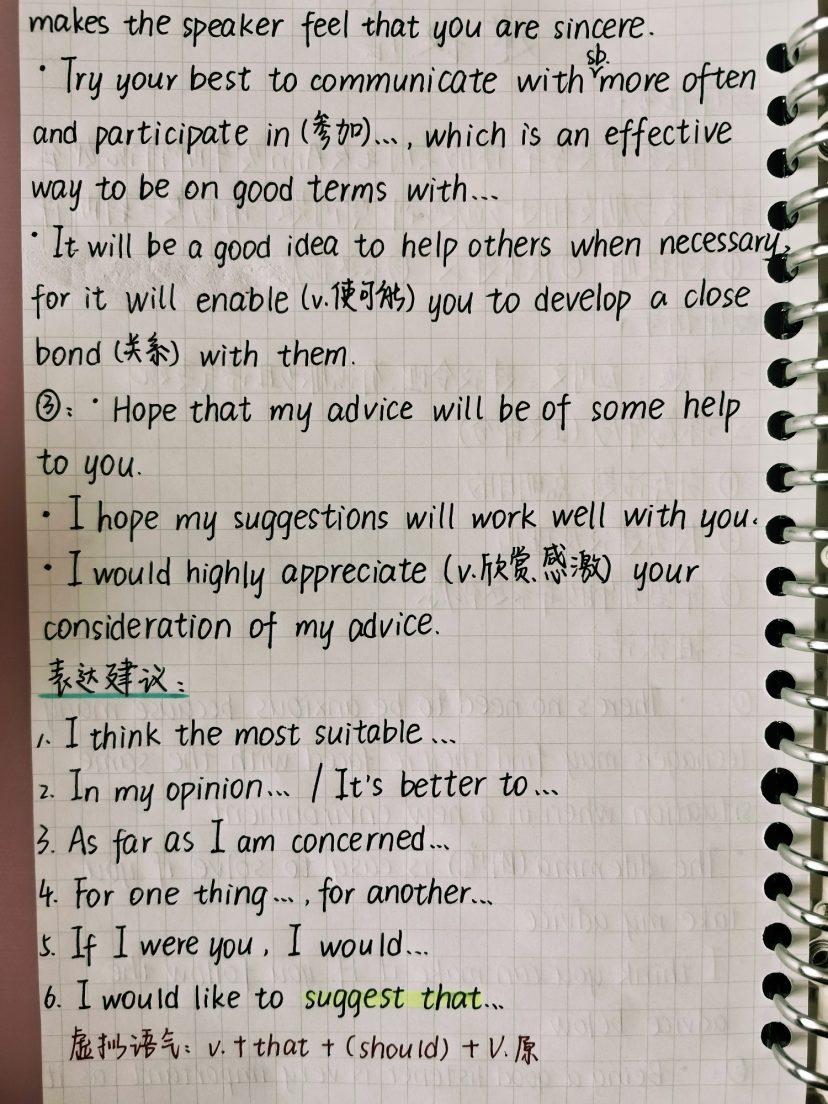 makes the speaker feel that you are sincere.
· Try your best to communicate with sb. more often
and participate in (参加)..., which is an effective
way to be on good terms with...
· It will be a good idea to help others when necessary,
for it will enable (v.使可能) you to develop a close
bond (关系) with them.
③: · Hope that my advice will be of some help
to you.
· I hope my suggestions will work well with you.
· I would highly appreciate (v.欣赏、感激) your
consideration of my advice.
表达建议:
1. I think the most suitable ...
2. In my opinion... / It's better to...
3. As far as I am concerned...
4. For one thing..., for another...
5. If I were you, I would...
6. I would like to suggest that...
虚拟语气: v. + that + (should) + V.原